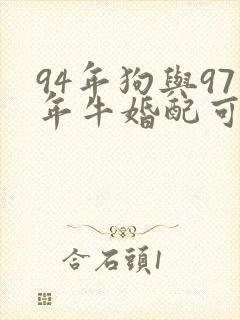 94年狗與97
年牛婚配可
合石頭1